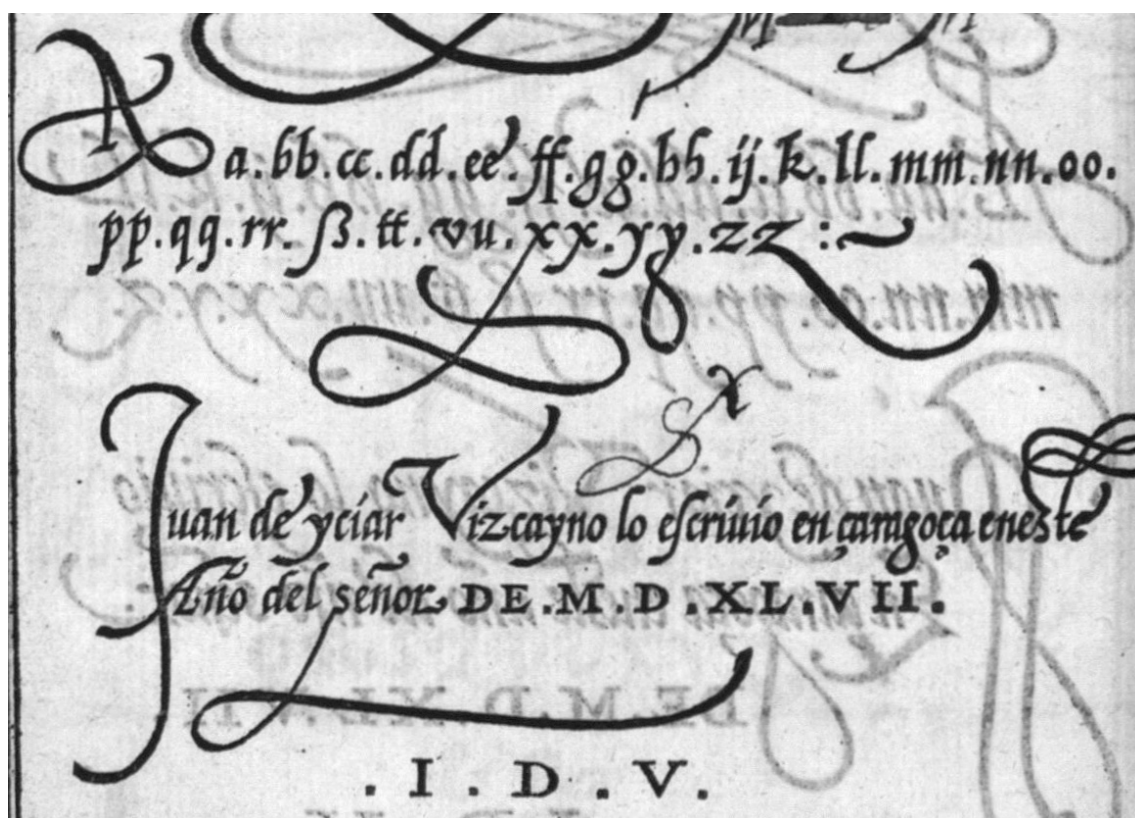 A a.bb.cc.dd.ee.ff.gg.hh.ij.k.ll.mm.nn.oo.
pp.qq.rr.ſs.tt.vu.xx.yy.zz:~
Iuan de yciar Vizcayno lo eſcriuio en çaragoça eneste
Año del señor DE.M.D.XL.VII.
.I.D.V.